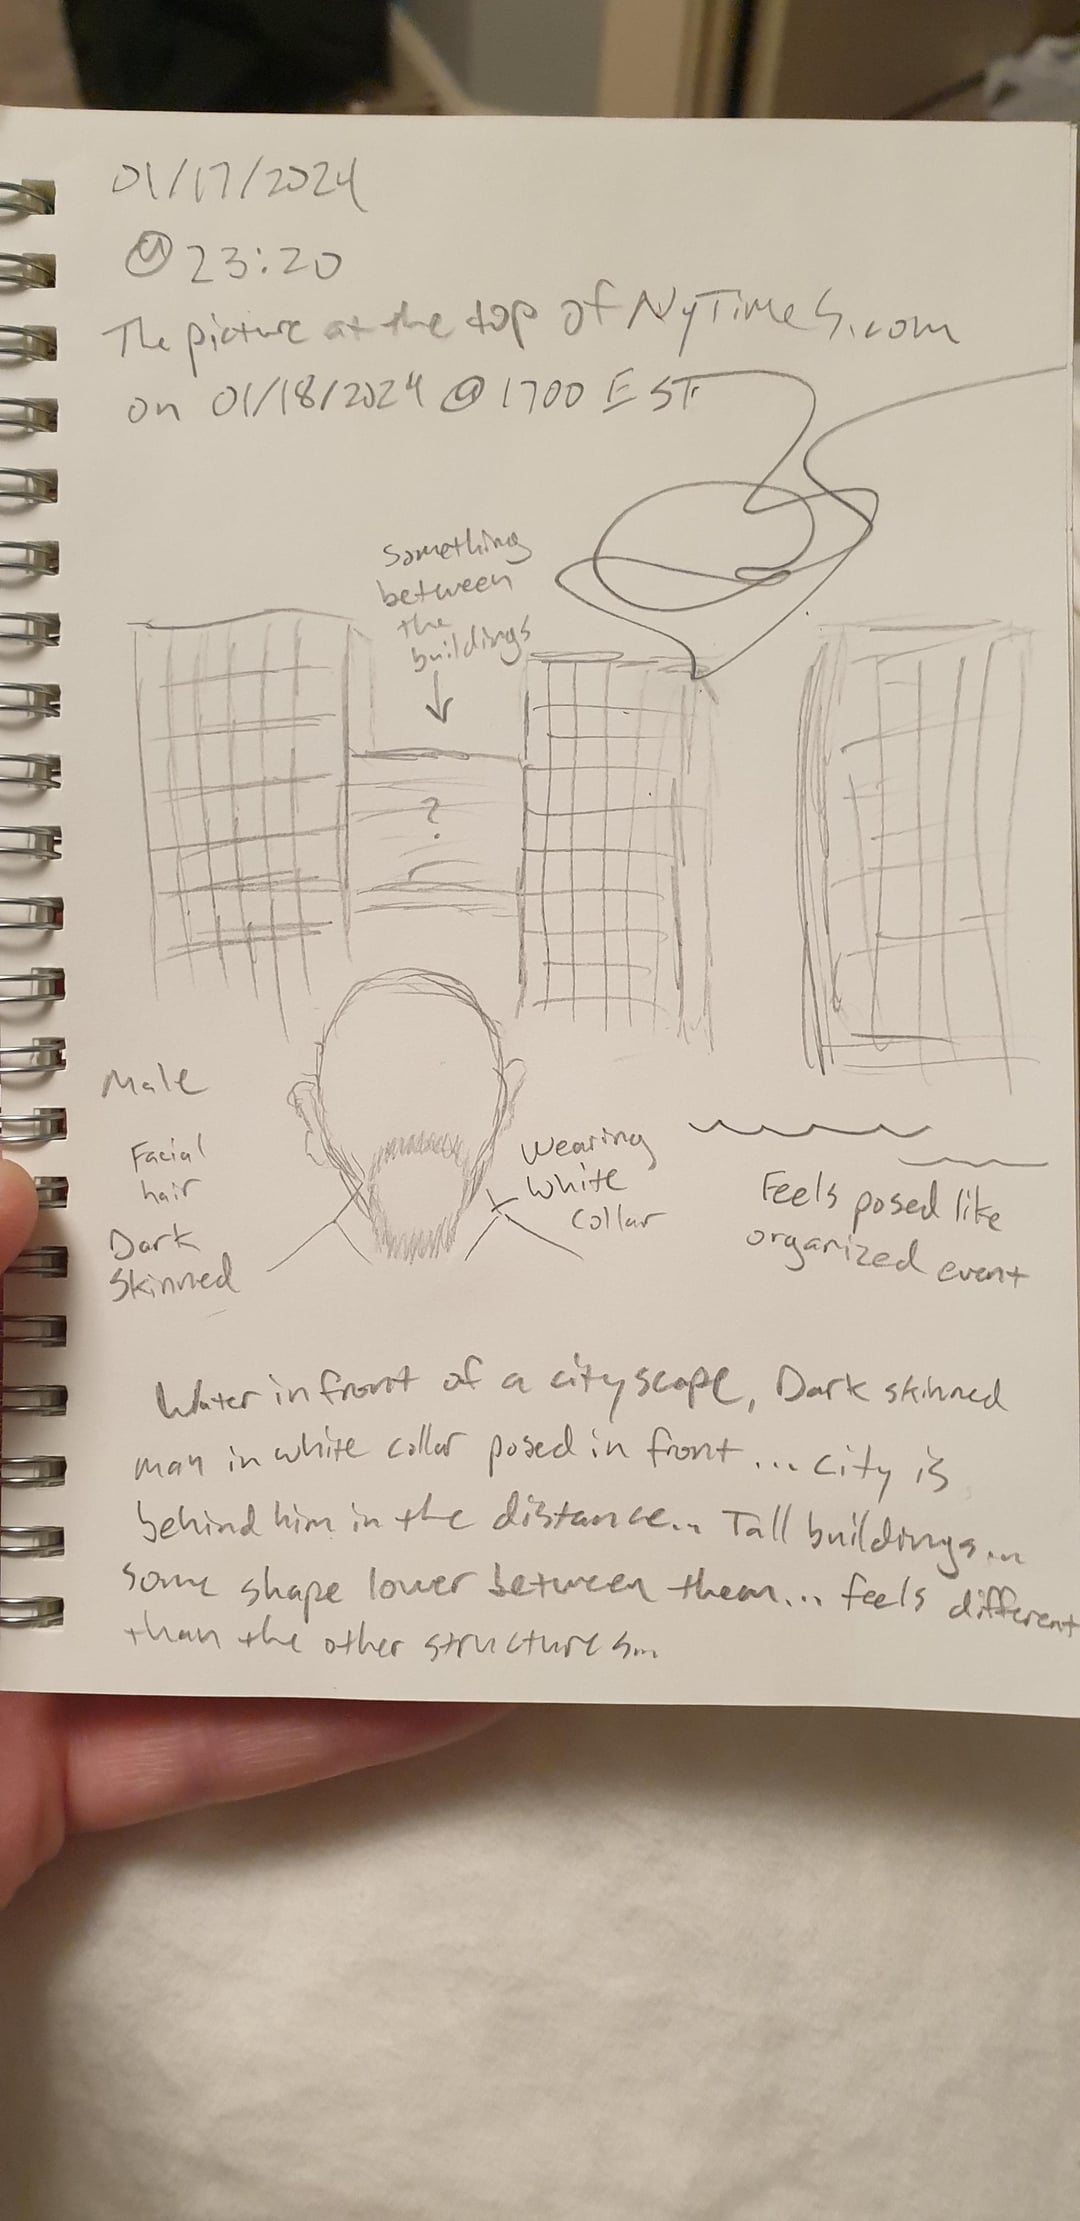 01/17/2024
@ 23:20
The picture at the top of NyTimes.com
on 01/18/2024 @ 1700 EST
Something
between
the
buildings
?
Male
Facial
hair
Dark
Skinned
Wearing
White
Collar
Feels posed like
organized event
Water in front of a cityscape, Dark skinned
man in white collar posed in front ... city is
behind him in the distance... Tall buildings...
some shape lower between them... feels different
than the other structures...